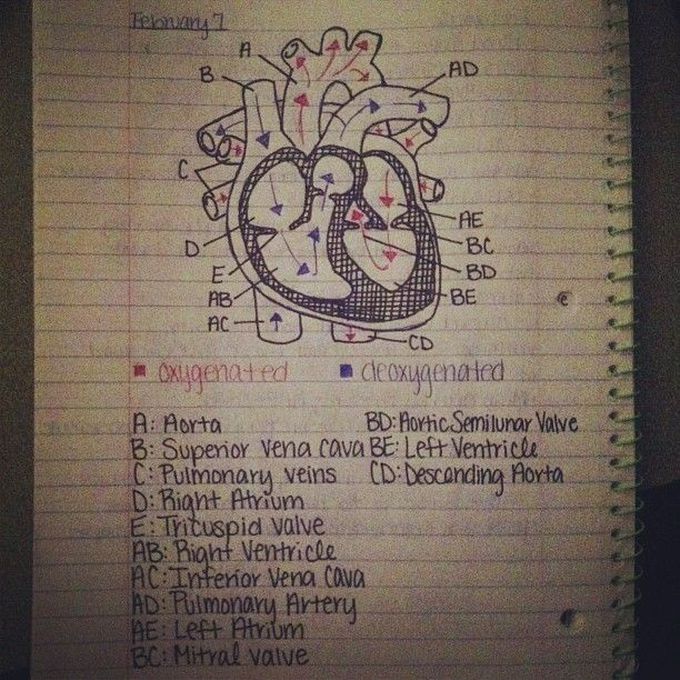 February 7
A
B
AD
C
D
E
AB
AC
AE
BC
BD
BE
CD
oxygenated
deoxygenated
A: Aorta
B: Superior Vena Cava
C: Pulmonary veins
D: Right Atrium
E: Tricuspid valve
AB: Right Ventricle
AC: Inferior Vena Cava
AD: Pulmonary Artery
AE: Left Atrium
BC: Mitral valve
BD: Aortic Semilunar Valve
BE: Left Ventricle
CD: Descending Aorta